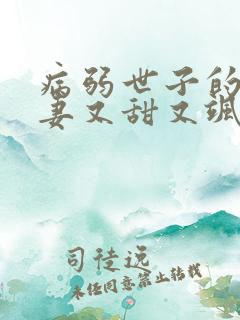 病弱世子的
妻又甜又飒
司徒说
未经同意禁止转载